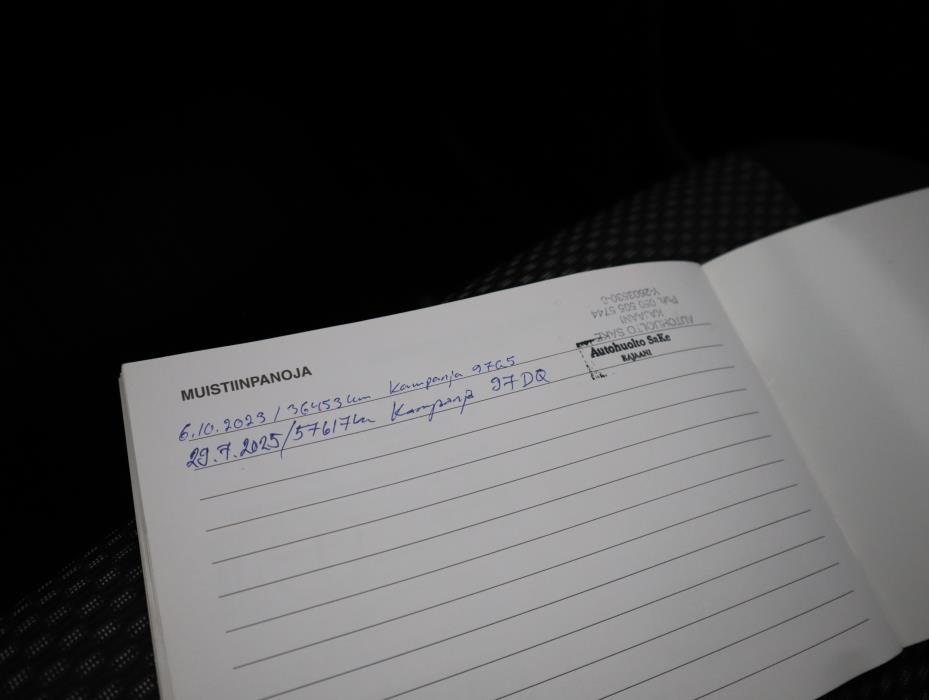 MUISTIINPANOJA
6.10.2023 / 36453 km Kampanja 97G5
29.7.2025/57617km Kampanja 97DQ
AUTOHUOLTO SAKE
KAJAANI
Puh. 050 505 5744
Y-2603530-6
Autohuolto SaKe
KAJAANI